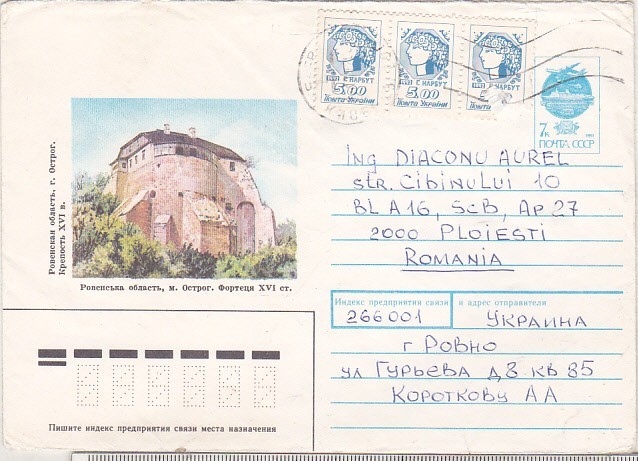 1992
Г. НАРБУТ
5.00
Пошта України
1992
Г. НАРБУТ
5.00
Пошта України
1992
НАРБУТ
Пошта України
7к
1991
ПОЧТА СССР
Ing DIACONU AUREL
str. Cibinului 10
BL A16, ScB, Ap 27
2000 PLOIESTI
ROMANIA
Ровенская область, г. Острог.
Крепость XVI в.
Ровенська область, м. Острог. Фортеця XVI ст.
Индекс предприятия связи и адрес отправителя
266001 УКРАИНА
г РОВНО
ул ГУРЬЕВА д8 кв 85
КОРОТКОВУ АА
Пишите индекс предприятия связи места назначения